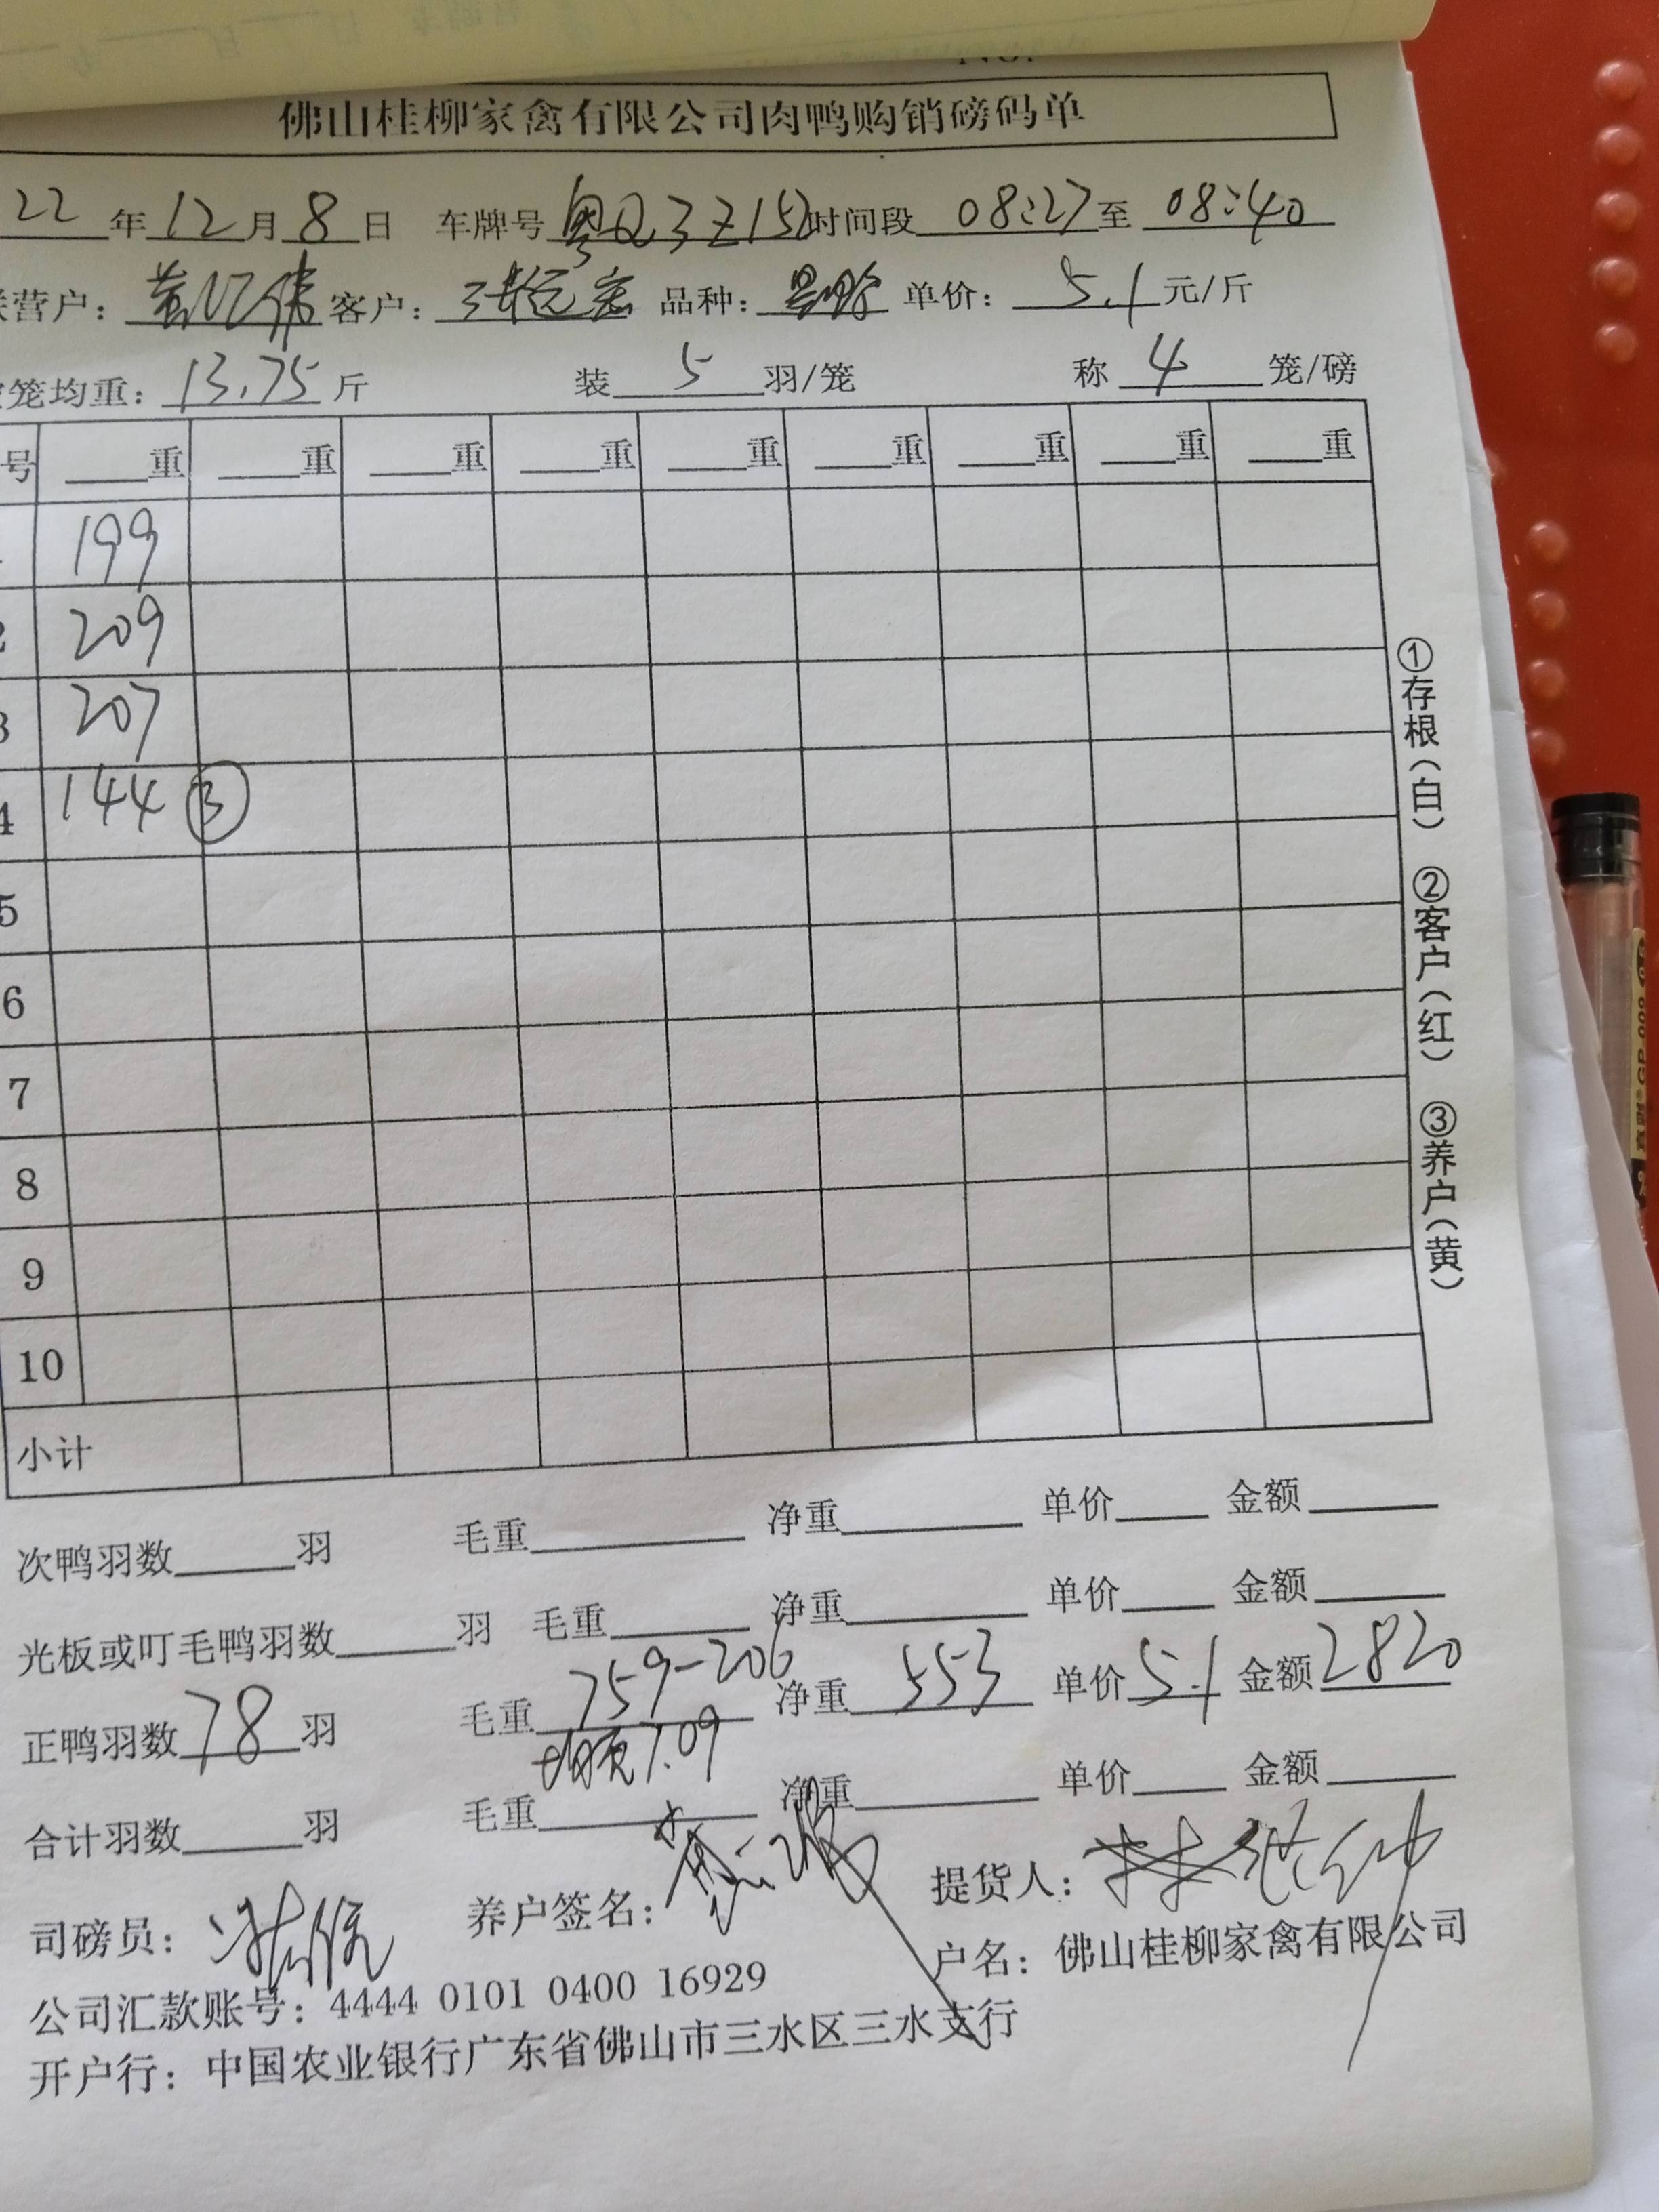 佛山桂柳家禽有限公司肉鸭购销磅码单
22年12月8日 车牌号粤Q3Z152时间段 08:27至 08:40
营户: 客户: 品种: 单价: 5.1元/斤
笼均重: 13.75斤 装 5 羽/笼 称 4 笼/磅
号 重 重 重 重 重 重 重 重 重
199
2 209
3 207
4 144 ③
5
6
7
8
9
10
小计
①存根(白) ②客户(红) ③养户(黄)
次鸭羽数 羽 毛重 净重 单价 金额
光板或叮毛鸭羽数 羽 毛重 净重 单价 金额
正鸭羽数78羽 毛重759-206 净重553 单价5.1 金额2820
均重7.09
合计羽数 羽 毛重 净重 单价 金额
司磅员: 养户签名: 提货人:
公司汇款账号: 4444 0101 0400 16929 户名: 佛山桂柳家禽有限公司
开户行: 中国农业银行广东省佛山市三水区三水支行